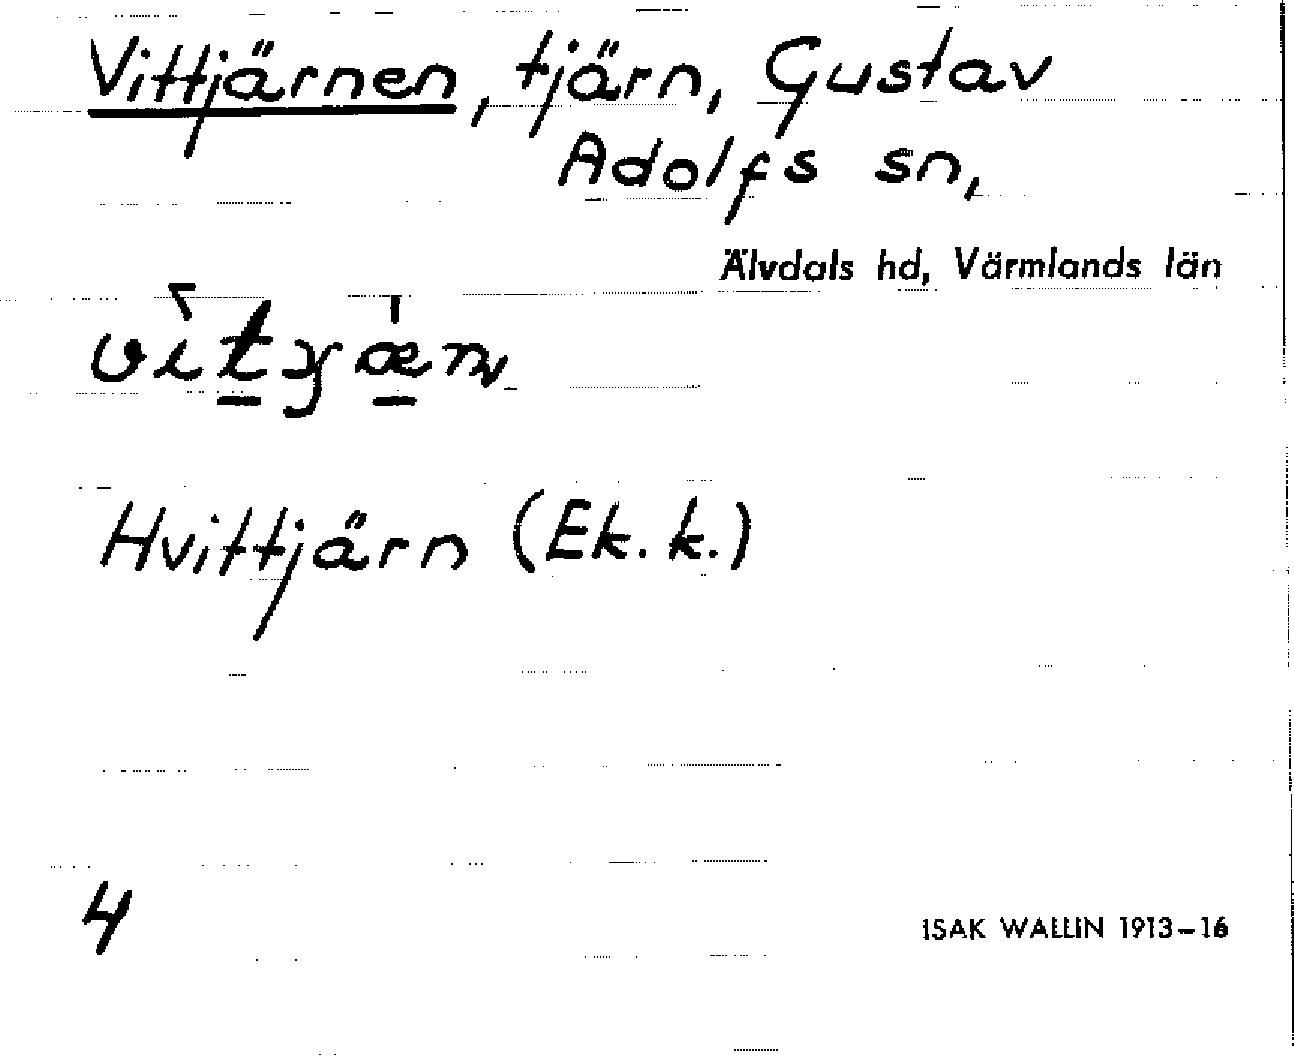 Vittjärnen, tjärn, Gustav
Adolfs sn,
Älvdals hd, Värmlands län
Hvittjärn (Ek. k.)
4
ISAK WALLIN 1913-16